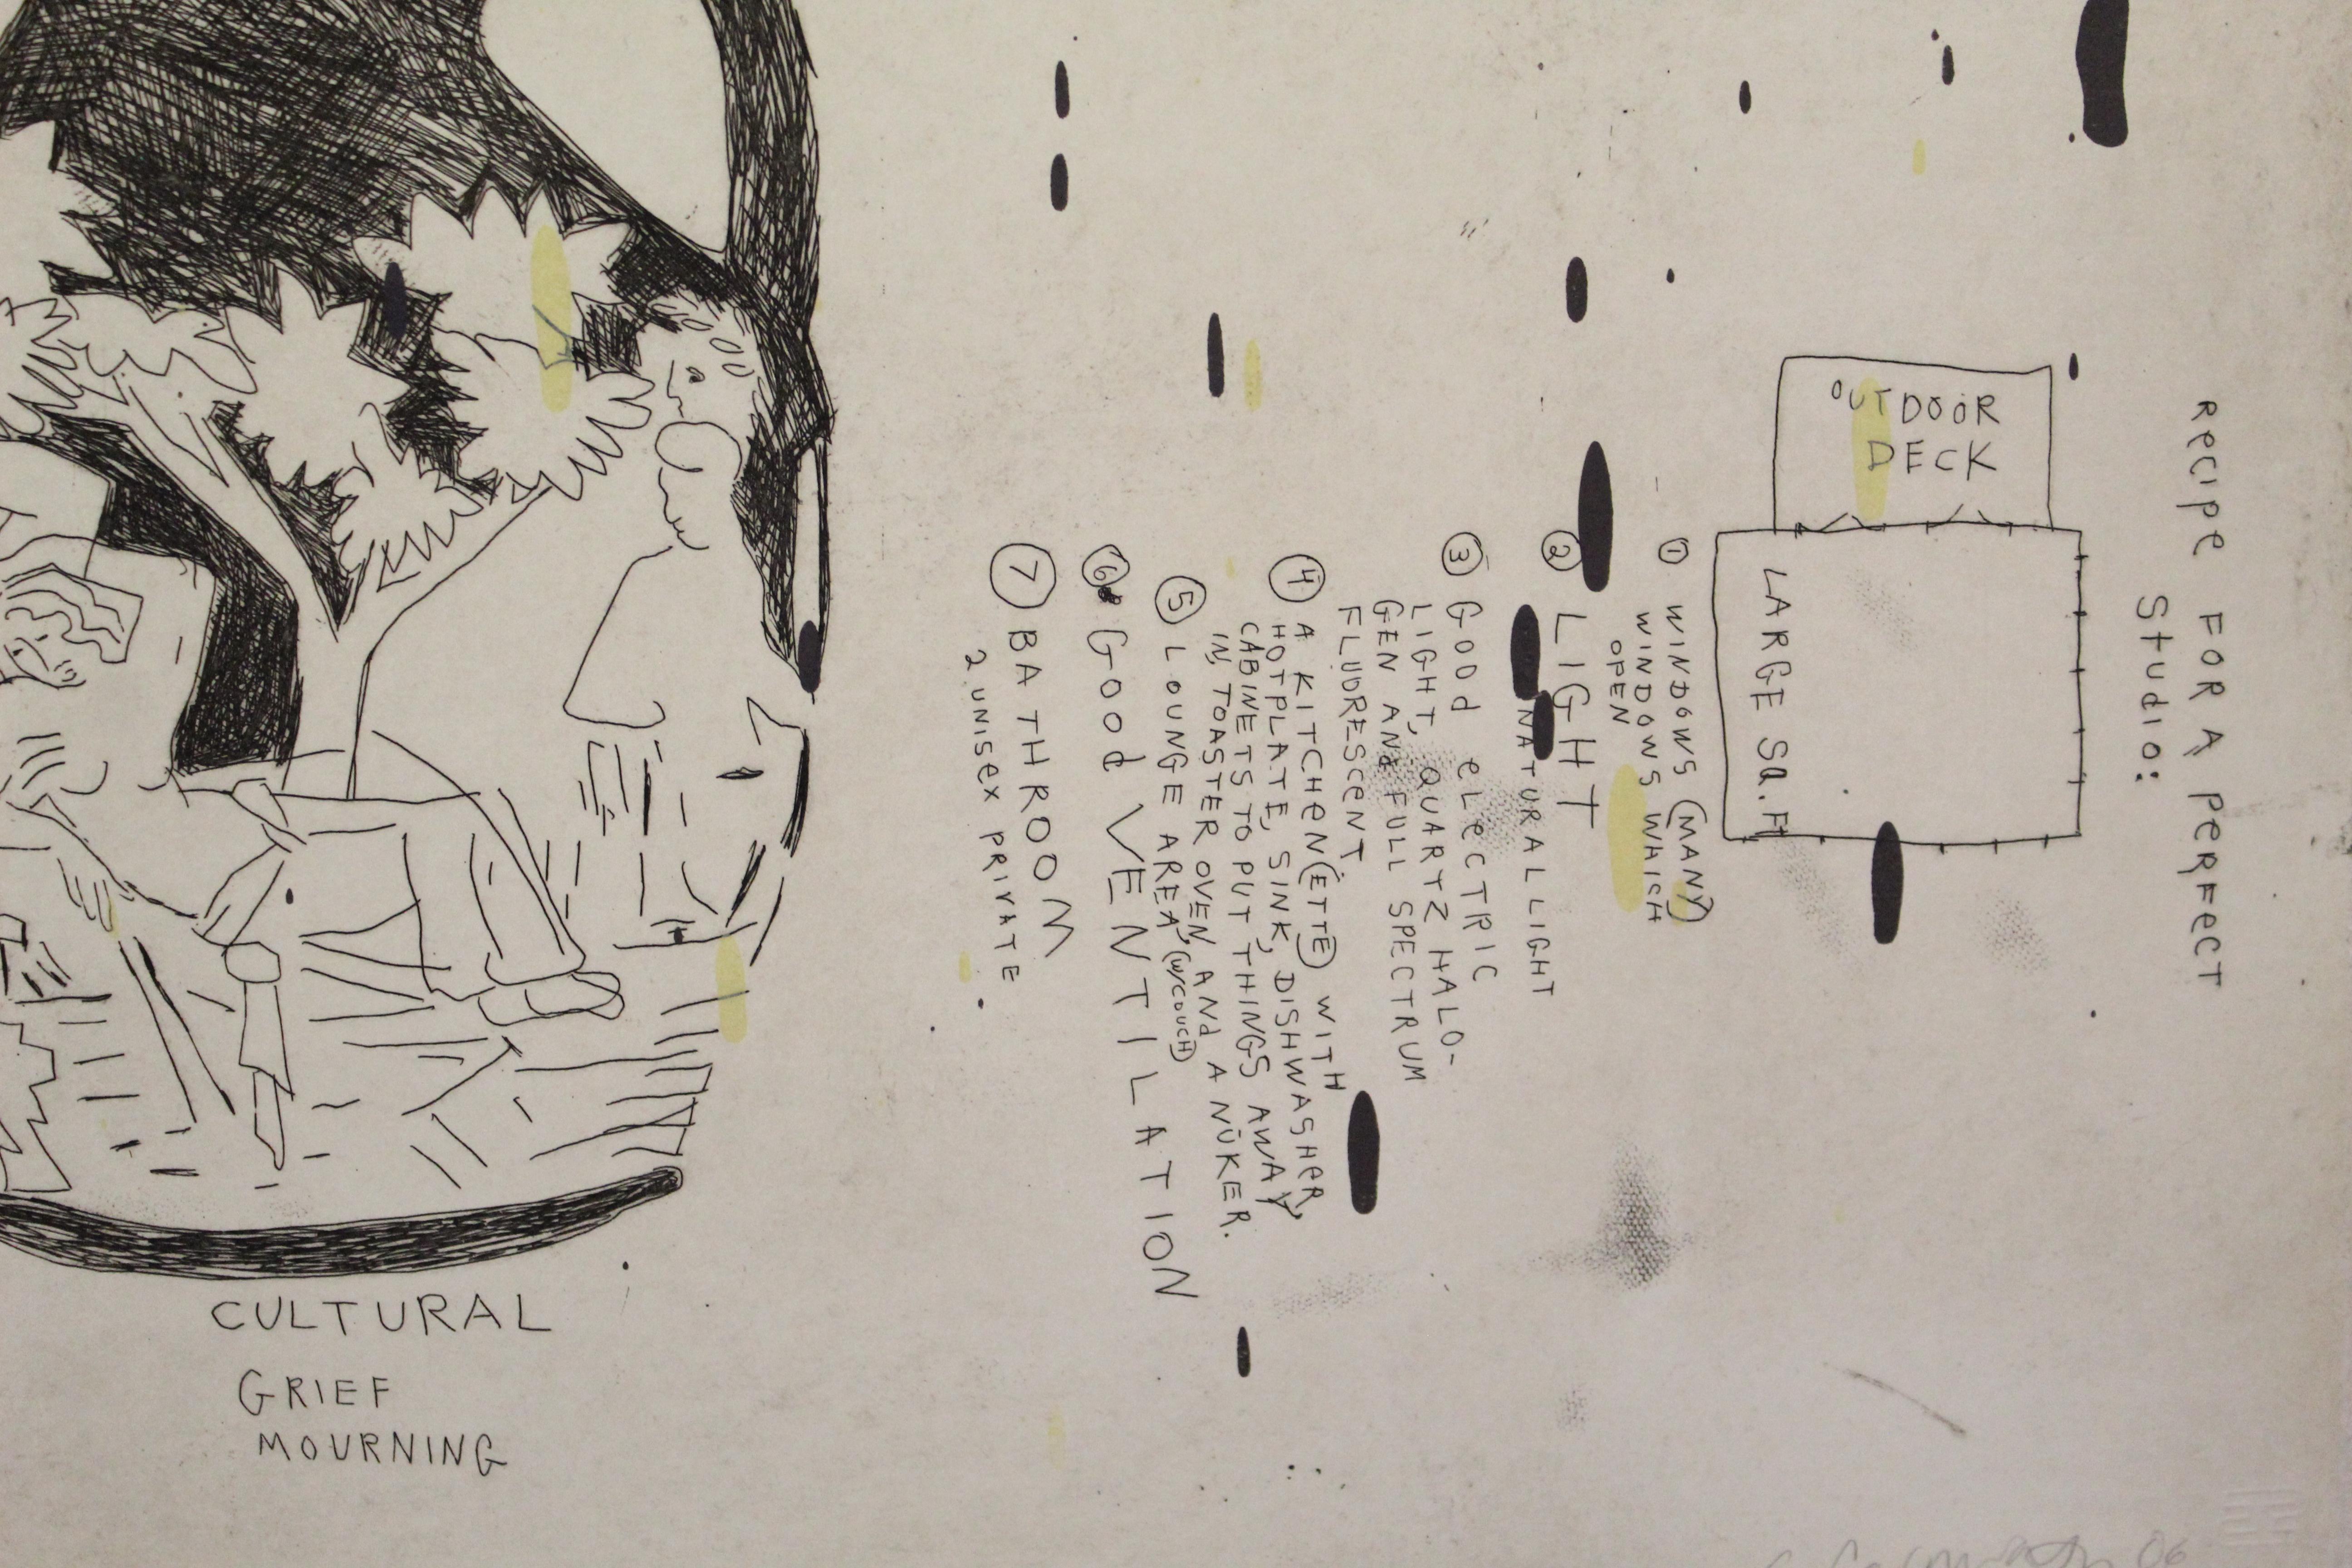 Recipe FOR A PeRFeCT
Studio:
OUTDOOR
DECK
LARGE SQ. Ft
① WINDOWS (MANY)
WINDOWS WHICH
OPEN
② LIGHT
NATURAL LIGHT
③ GOOd eLeCTRIC
LIGHT, QUARTZ HALO-
GEN ANd FULL SPECTRUM
FLUORESCENT
④ A KITCHEN(ETTE) WITH
HOTPLATE, SINK, DISHWASHeR,
CABINETS TO PUT THINGS AWAY,
IN, TOASTER OVEN ANd A NŪKER.
⑤ LOUNGE AREA, (W/COUCH)
⑥ GOOd VENTILATION
⑦ BATHROOM
2 UNISEX PRIVATE
CULTURAL
GRIEF
MOURNING